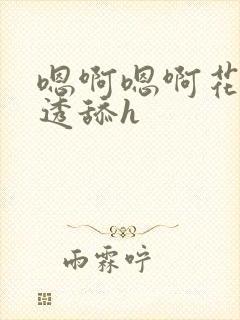 嗯啊嗯啊花
透舔h
雨霖咛